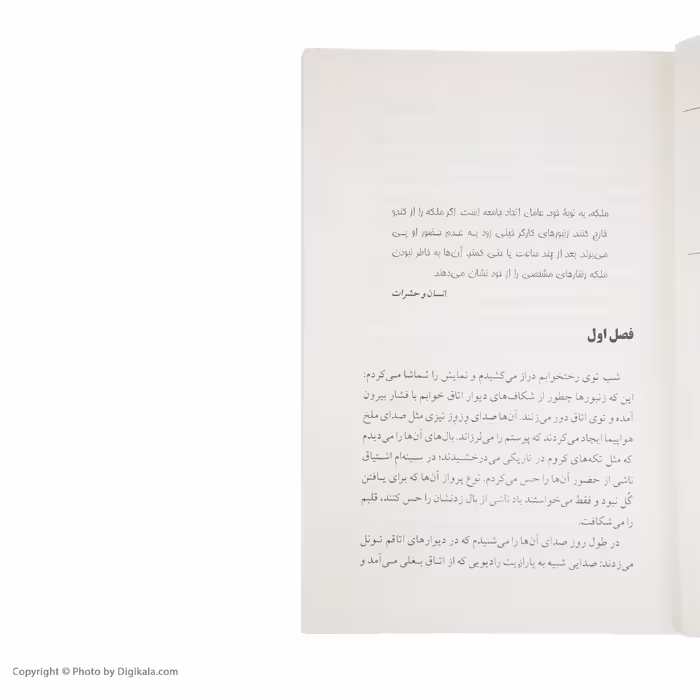 ملکه، به نوبهٔ خود، عامل اتحاد جامعه است. اگر ملکه را از کندو
خارج کنند، زنبورهای کارگر خیلی زود به عدم حضور او پی
می‌برند. بعد از چند ساعت یا حتی کمتر، آن‌ها به خاطر نبودن
ملکه رفتارهای مشخصی را از خود نشان می‌دهند.
انسان و حشرات
فصل اول
شب توی رختخوابم دراز می‌کشیدم و نمایش را تماشا می‌کردم:
این که زنبورها چطور از شکاف‌های دیوار اتاق خوابم با فشار بیرون
آمده و توی اتاق دور می‌زنند. آن‌ها صدای وزوز تیزی مثل صدای ملخ
هواپیما ایجاد می‌کردند که پوستم را می‌لرزاند. بال‌های آن‌ها را می‌دیدم
که مثل تکه‌های کروم در تاریکی می‌درخشیدند؛ در سینه‌ام اشتیاق
ناشی از حضور آن‌ها را حس می‌کردم. نوع پرواز آن‌ها که برای یافتن
گُل نبود و فقط می‌خواستند باد ناشی از بال زدنشان را حس کنند، قلبم
را می‌شکافت.
در طول روز صدای آن‌ها را می‌شنیدم که در دیوارهای اتاقم تونل
می‌زدند: صدایی شبیه به پارازیت رادیویی که از اتاق بغلی می‌آمد و
Copyright © Photo by Digikala.com